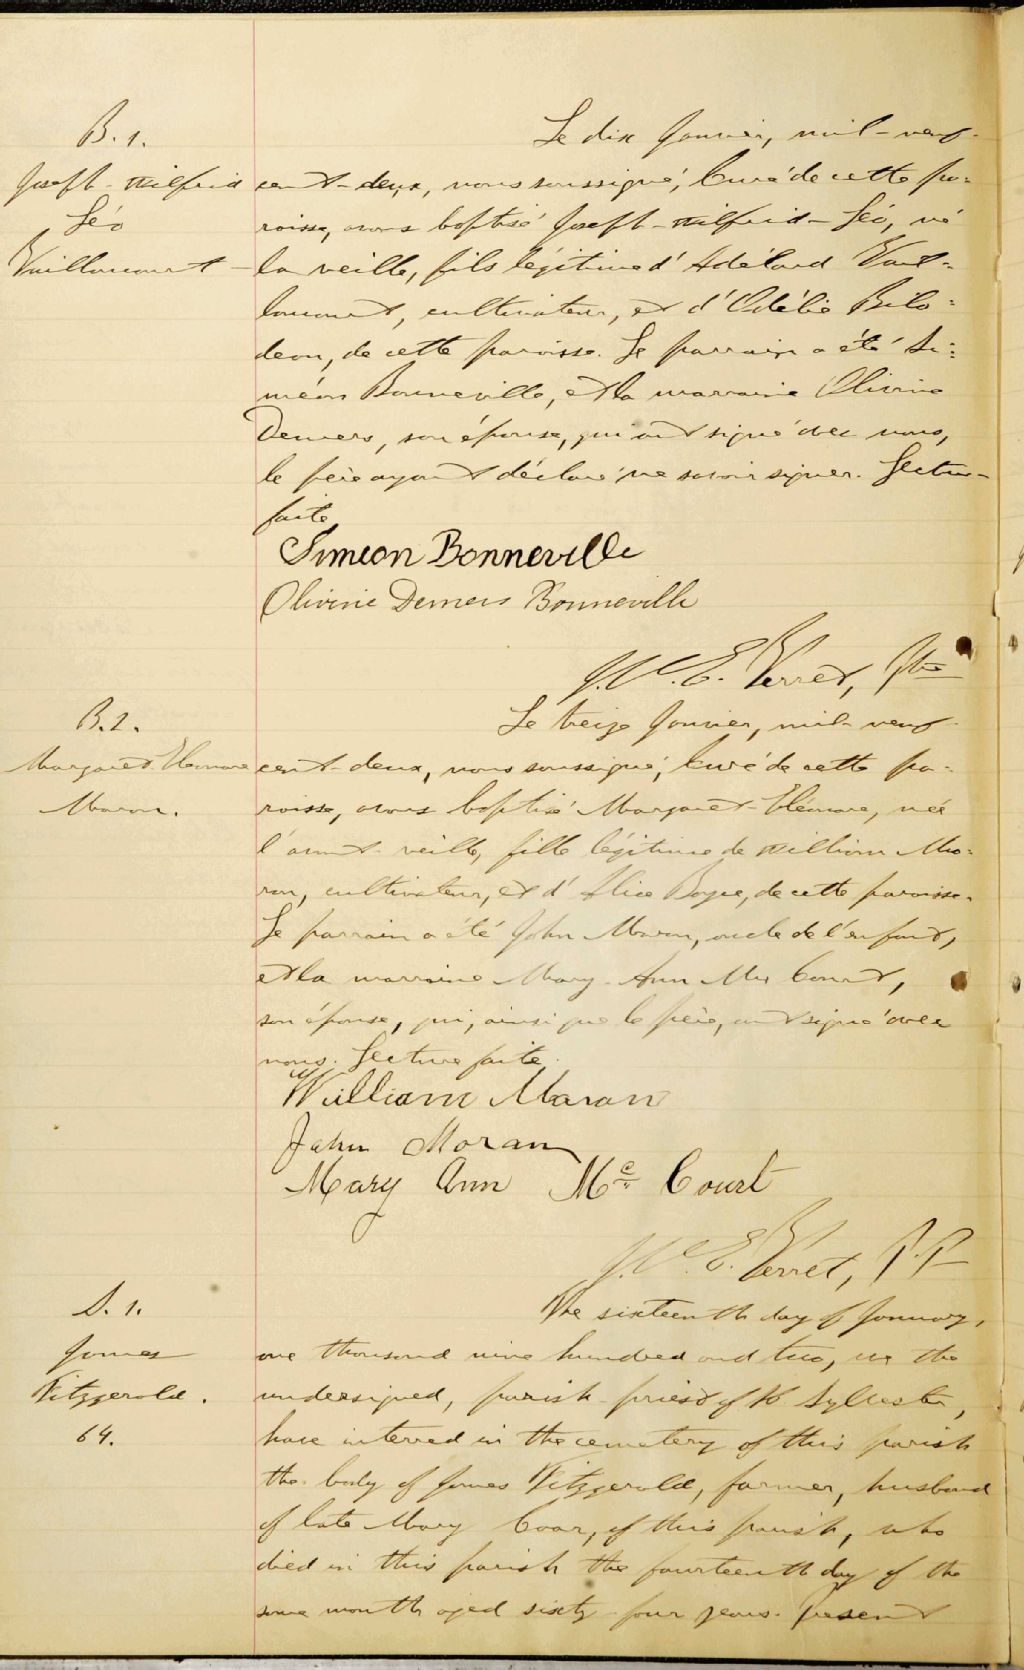 B. 1.
Joseph-Wilfrid
Léo
Vaillancourt
Le dix Janvier, mil-neuf-
cent-deux, nous soussigné, Curé de cette pa-
roisse, avons baptisé Joseph-Wilfrid-Léo, né
la veille, fils légitime d'Adélard Vail-
lancourt, cultivateur, et d'Odélie Bilo-
deau, de cette paroisse. Le parrain a été Si-
méon Bonneville, et la marraine Olivine
Demers, son épouse, qui ont signé avec nous,
le père ayant déclaré ne savoir signer. Lecture
faite
Simeon Bonneville
Olivine Demers Bonneville
J. E. Verret, Ptre
B. 2.
Margaret Eleonore
Moran.
Le treize Janvier, mil-neuf-
cent-deux, nous soussigné, Curé de cette pa-
roisse, avons baptisé Margaret-Eléonore, née
l'avant-veille, fille légitime de William Mo-
ran, cultivateur, et d'Alice Bogue, de cette paroisse.
Le parrain a été John Moran, oncle de l'enfant,
et la marraine Mary-Ann Mc Court,
son épouse, qui, ainsi que le père, ont signé avec
nous. Lecture faite.
William Moran
John Moran
Mary Ann Mc Court
J. E. Verret, P.P
S. 1.
James
Fitzgerald.
64.
The sixteenth day of January,
one thousand nine hundred and two, we the
undersigned, parish-priest of St Sylvester,
have interred in the cemetery of this parish
the body of James Fitzgerald, farmer, husband
of late Mary Coar, of this parish, who
died in this parish the fourteenth day of the
same month aged sixty-four years. Present